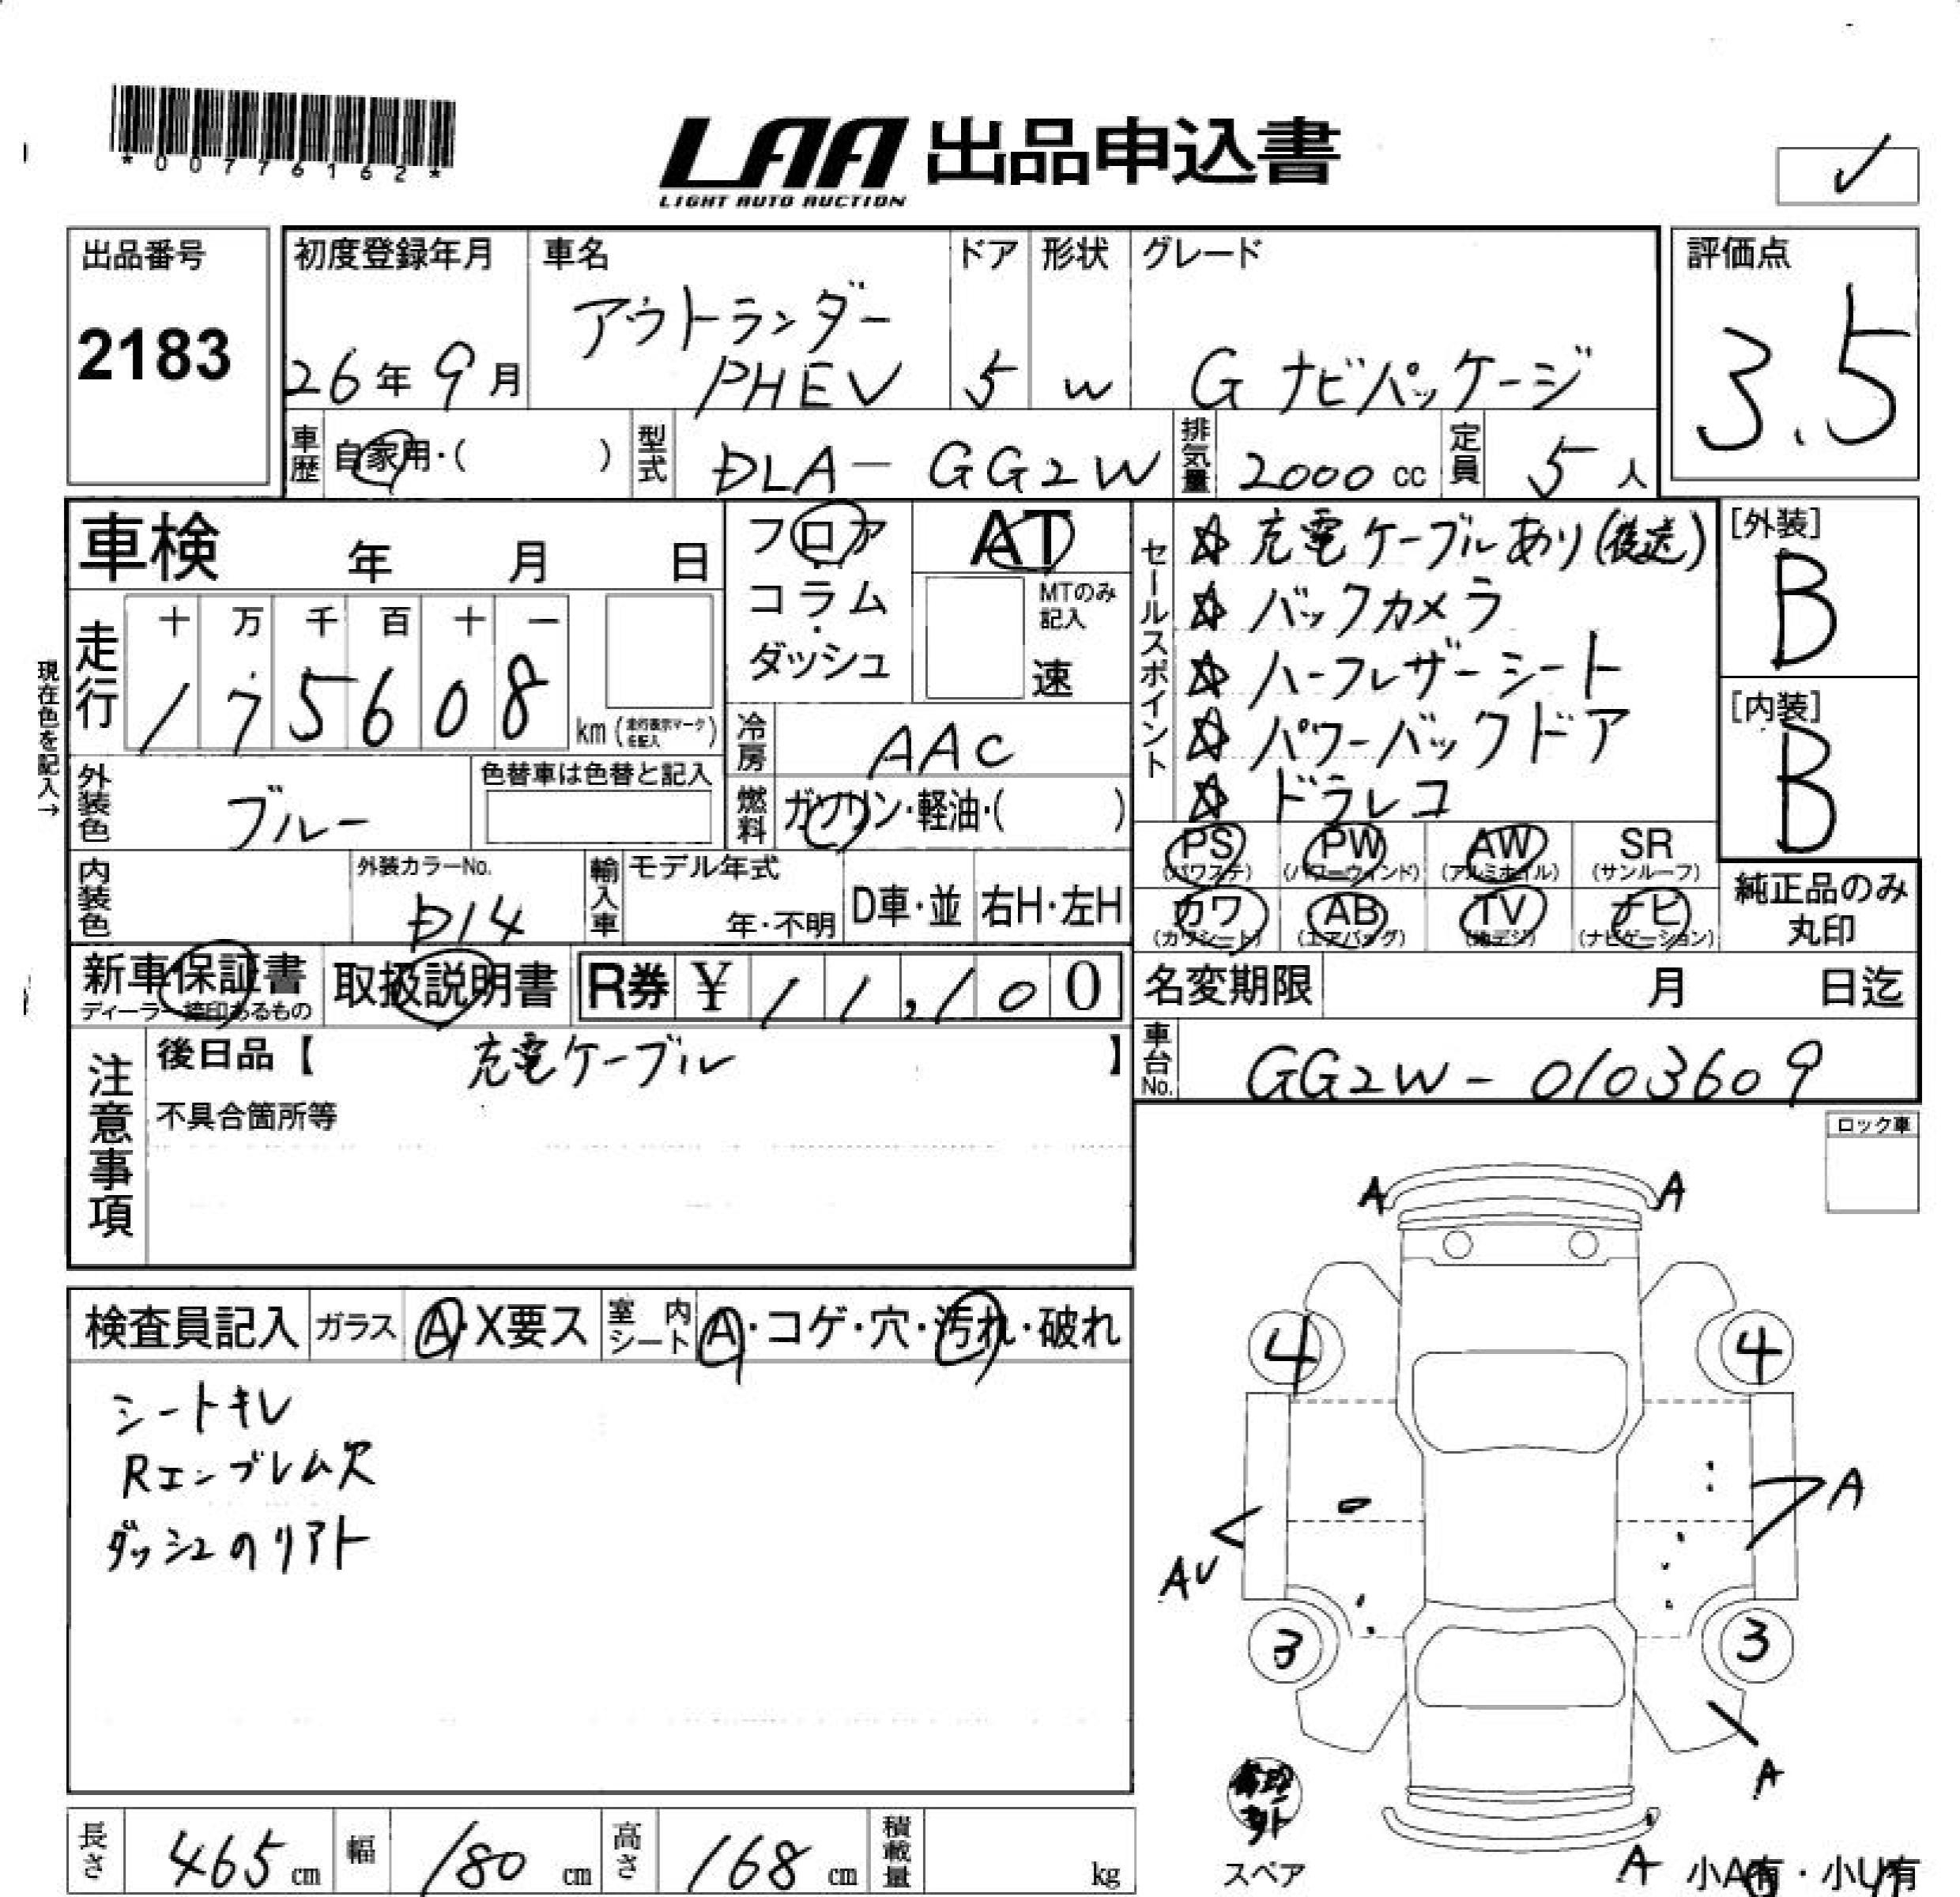 *00776162*
LAA 出品申込書
LIGHT AUTO AUCTION
出品番号
2183
初度登録年月
26年9月
車名
アウトランダー
PHEV
ドア
5
形状
W
グレード
G ナビパッケージ
評価点
3.5
車歴 自家用・( )
型式 DLA-GG2W
排気量 2000 cc
定員 5人
車検 年 月 日
フロア
コラム
・
ダッシュ
AT
MTのみ
記入
速
セールスポイント
☆ 充電ケーブルあり(後送)
☆ バックカメラ
☆ ハーフレザーシート
☆ パワーバックドア
☆ ドラレコ
[外装]
B
[内装]
B
現在色を記入→
走行
十 万 千 百 十 一
1 7 5 6 0 8
km (走行表示マークを記入)
冷房 AAC
燃料 ガソリン・軽油・( )
外装色 ブルー
色替車は色替と記入
内装色
外装カラーNo.
D14
輸入車
モデル年式
年・不明
D車・並
右H・左H
PS (パワステ)
PW (パワーウィンド)
AW (アルミホイル)
SR (サンルーフ)
カワ (カワシート)
AB (エアバッグ)
TV (地デジ)
ナビ (ナビゲーション)
純正品のみ
丸印
新車保証書
ディーラー捺印あるもの
取扱説明書
R券 ¥ 11,100
名変期限 月 日迄
注意事項
後日品【 充電ケーブル 】
不具合箇所等
車台No. GG2W-0103609
ロック車
検査員記入
ガラス A・X要ス
室内シート A・コゲ・穴・汚れ・破れ
シートキレ
Rエンブレム欠
ダッシュのリアト
A A
4 4
A
AU
3 3
A
スペア
A
小A有・小U有
長さ 465 cm
幅 180 cm
高さ 168 cm
積載量 kg